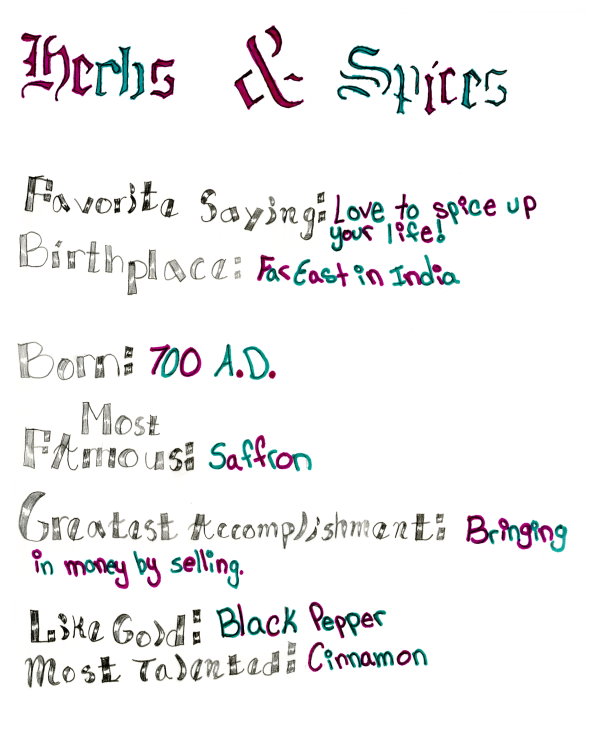 Herbs & Spices
Favorite Saying: Love to spice up
your life!
Birthplace: Far East in India
Born: 700 A.D.
Most
Famous: Saffron
Greatest Accomplishment: Bringing
in money by selling.
Like Gold: Black Pepper
Most Talented: Cinnamon